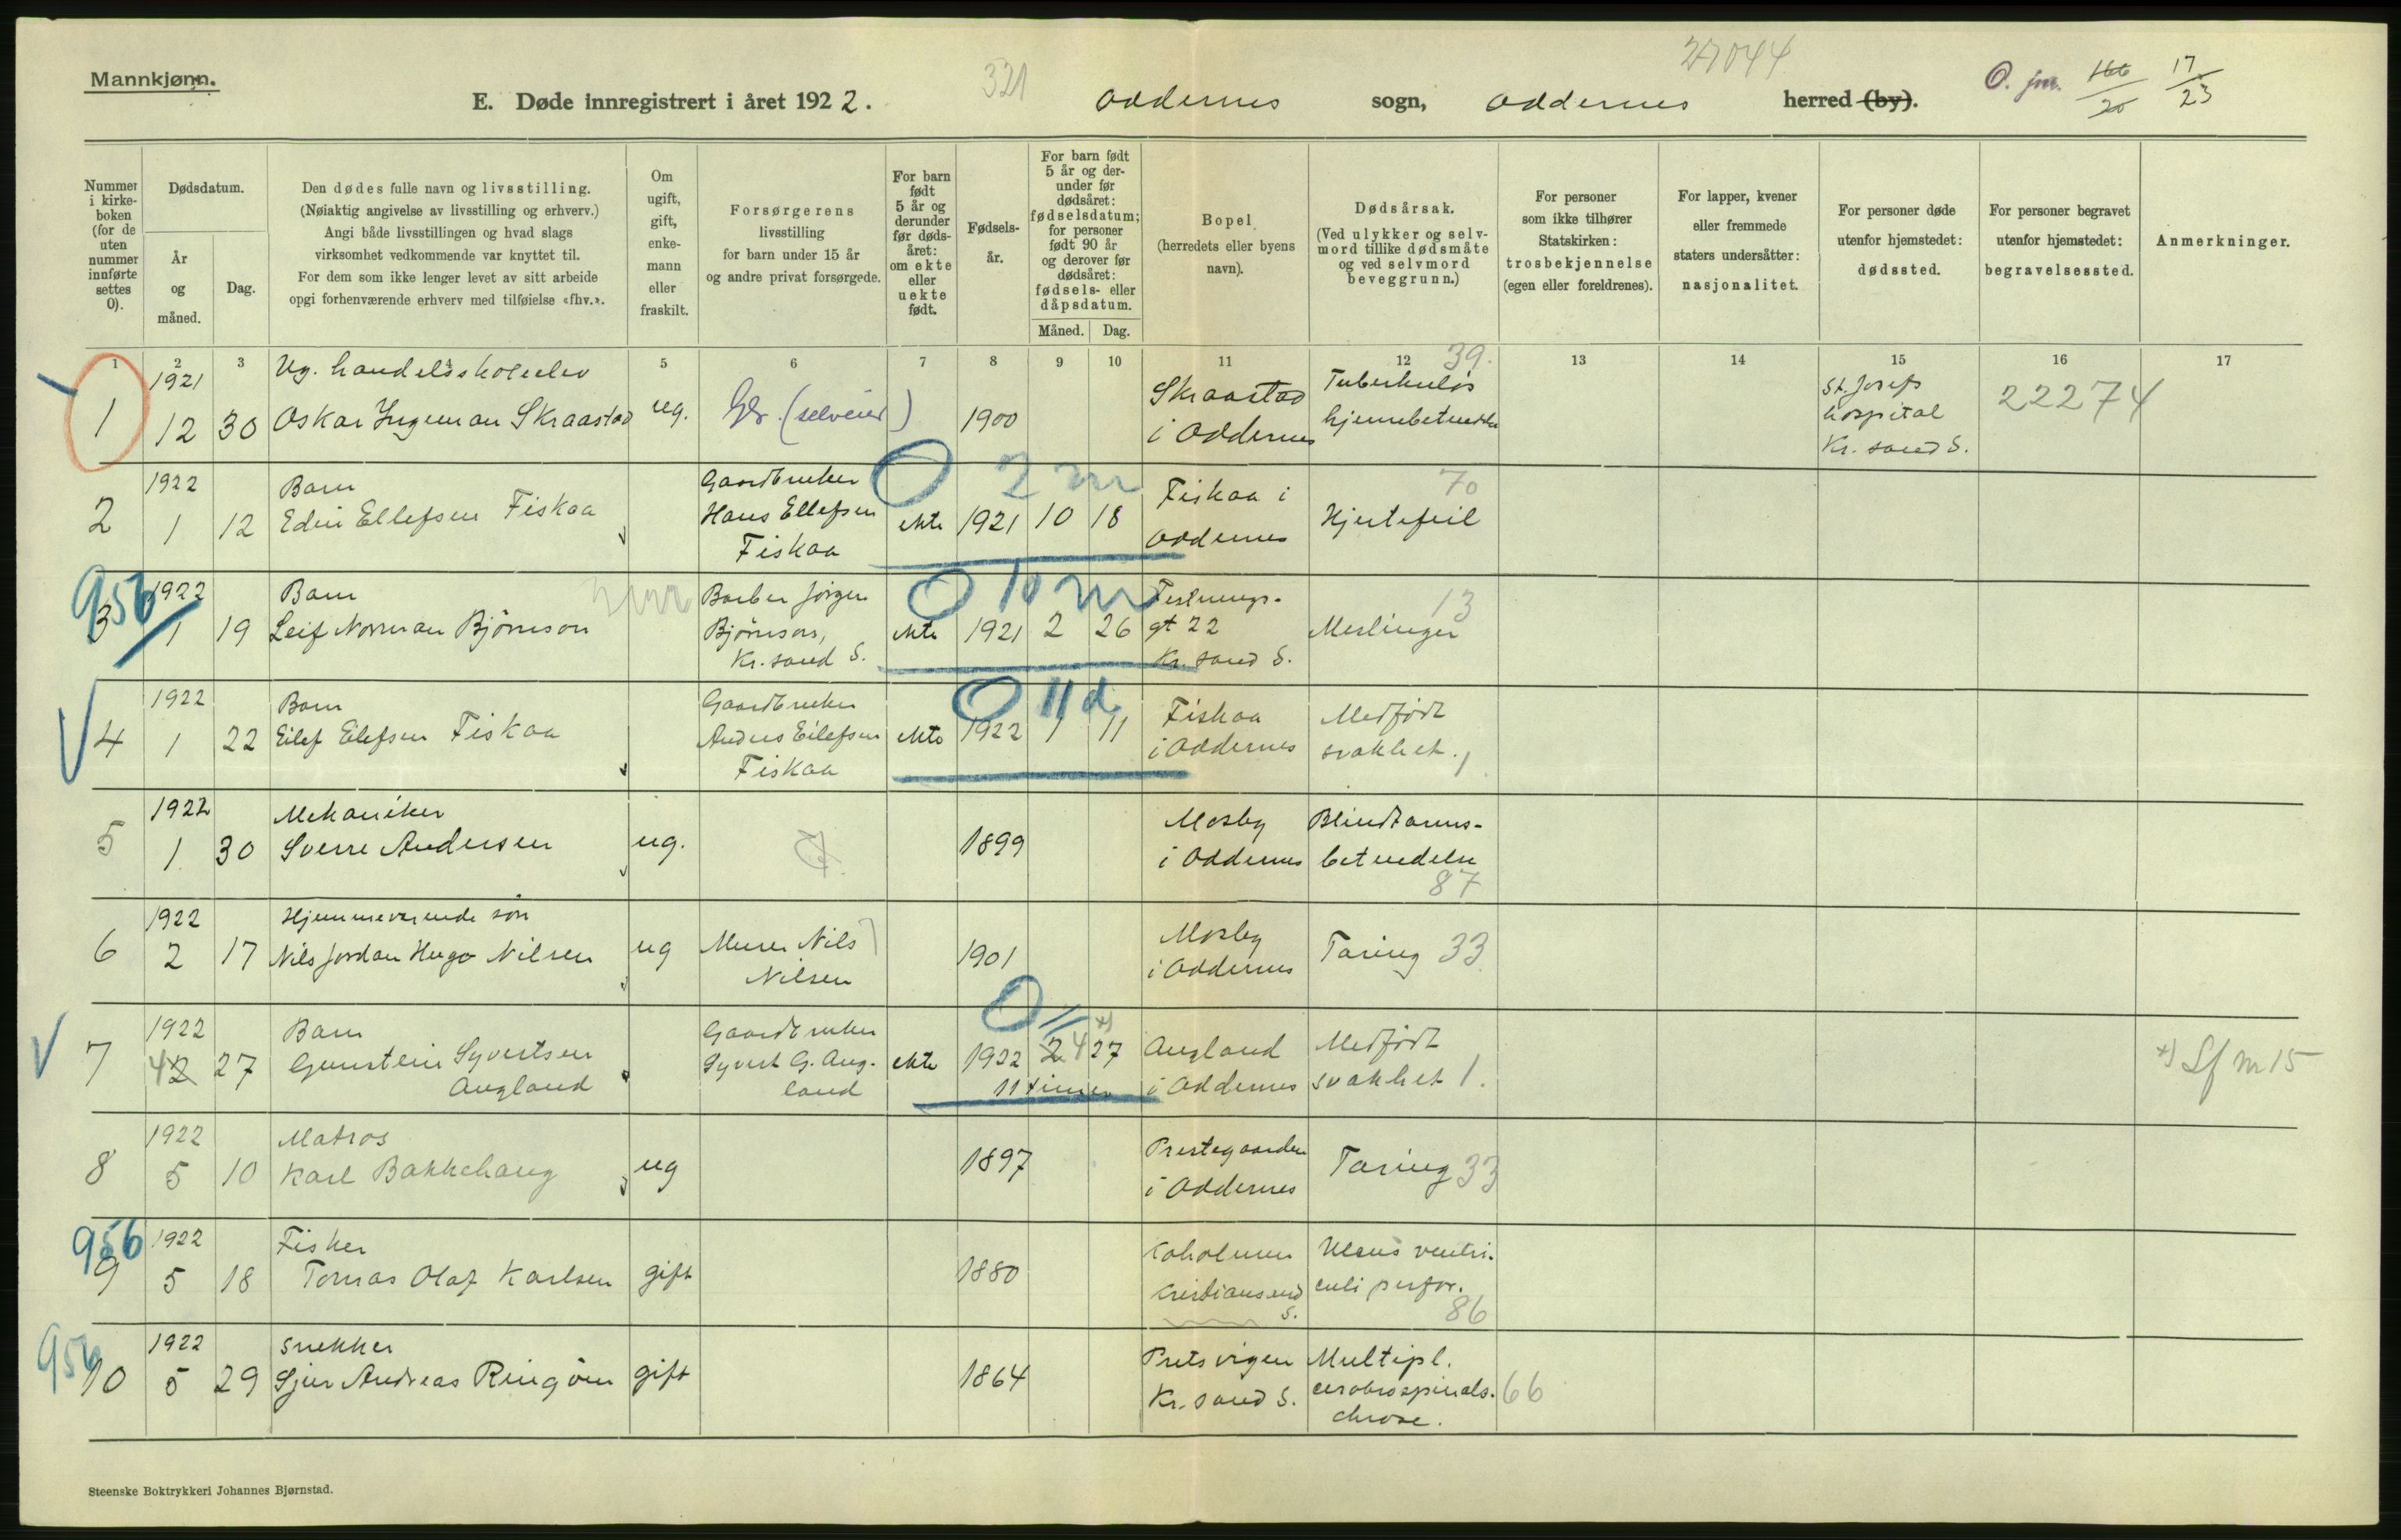 Mannkjønn.
E. Døde innregistrert i året 1922.
321
Oddernes sogn, Oddernes herred (by).
27044
O. jnr. 166/20 17/23
Nummer i kirkeboken (for de uten nummer innførte settes 0).
Dødsdatum.
År og måned.
Dag.
Den dødes fulle navn og livsstilling.
(Nøiaktig angivelse av livsstilling og erhverv.)
Angi både livsstillingen og hvad slags
virksomhet vedkommende var knyttet til.
For dem som ikke lenger levet av sitt arbeide
opgi forhenværende erhverv med tilføielse «fhv.».
Om ugift, gift, enkemann eller fraskilt.
Forsørgerens
livsstilling
for barn under 15 år
og andre privat forsørgede.
For barn født 5 år og derunder før dødsåret: om ekte eller uekte født.
Fødselsår.
For barn født 5 år og derunder før dødsåret: fødselsdatum; for personer født 90 år og derover før dødsåret: fødsels- eller dåpsdatum.
Måned. Dag.
Bopel
(herredets eller byens
navn).
Dødsårsak.
(Ved ulykker og selvmord tillike dødsmåte
og ved selvmord
beveggrunn.)
For personer
som ikke tilhører
Statskirken:
trosbekjennelse
(egen eller foreldrenes).
For lapper, kvener
eller fremmede
staters undersåtter:
nasjonalitet.
For personer døde
utenfor hjemstedet:
dødssted.
For personer begravet
utenfor hjemstedet:
begravelsessted.
Anmerkninger.
1 2 3 5 6 7 8 9 10 11 12 13 14 15 16 17
1 1921 12 30 Ug. handelsskoleelev
Oskar Ingeman Skraastad ug. Gbr. (selveier) 1900 Skraastad i Oddernes Tuberkuløs hjernebetendelse 39. St. Josefs hospital Kr.sand S. 22274
2 1922 1 12 Barn
Edin Ellefsen Fiskaa Gaardbruker Hans Ellefsen Fiskaa ekte 1921 10 18 0 2 m Fiskaa i Oddernes Hjertefeil 70
956
3 1922 1 19 Barn
Leif Norman Bjørnson Barber Jørgen Bjørnson, Kr.sand S. ekte 1921 2 26 0 10 m Festningsgt 22 Kr.sand S. Meslinger 13
4 1922 1 22 Barn
Eilef Eilefsen Fiskaa Gaardbruker Anders Eilefsen Fiskaa ekte 1922 1 11 0 11 d Fiskaa i Oddernes Medfødt svakhet. 1
5 1922 1 30 Mekaniker
Sverre Andersen ug. 1899 Mosby i Oddernes Blindtarmsbetendelse 87
6 1922 2 17 Hjemmeværende søn
Nils Jordan Hugo Nilsen ug Murer Nils Nilsen 1901 Mosby i Oddernes Tæring 33
7 1922 4 2 27 Barn
Gunstein Syvertsen Augland Gaardbruker Syvert G. Augland ekte 1922 2 4 27 x) 0 11 timer Augland i Oddernes Medfødt svakhet 1. x) Lf nr 15
8 1922 5 10 Matros
Karl Bakkehaug ug 1897 Prestegaarden i Oddernes Tæring 33
956
9 1922 5 18 Fisker
Tomas Olaf Karlsen gift 1880 Kaholmen Kristiansand S. Ulcus ventriculi perfor. 86
956
10 1922 5 29 Snekker
Sjur Andreas Ringøen gift 1864 Pretsvigen Kr.sand S. Multipl. cerebrospinalsclerose. 66
Steenske Boktrykkeri Johannes Bjørnstad.